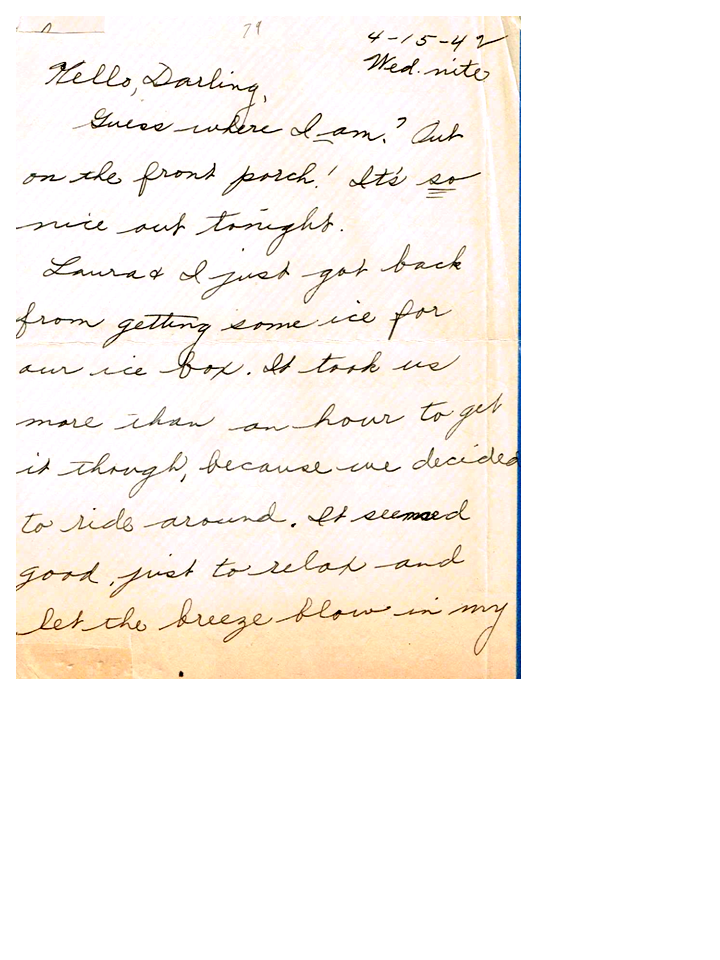 79
4-15-42
Wed. nite
Hello, Darling,
Guess where I am? Out
on the front porch! It's so
nice out tonight.
Laura & I just got back
from getting some ice for
our ice box. It took us
more than an hour to get
it though, because we decided
to ride around. It seemed
good, just to relax and
let the breeze blow in my